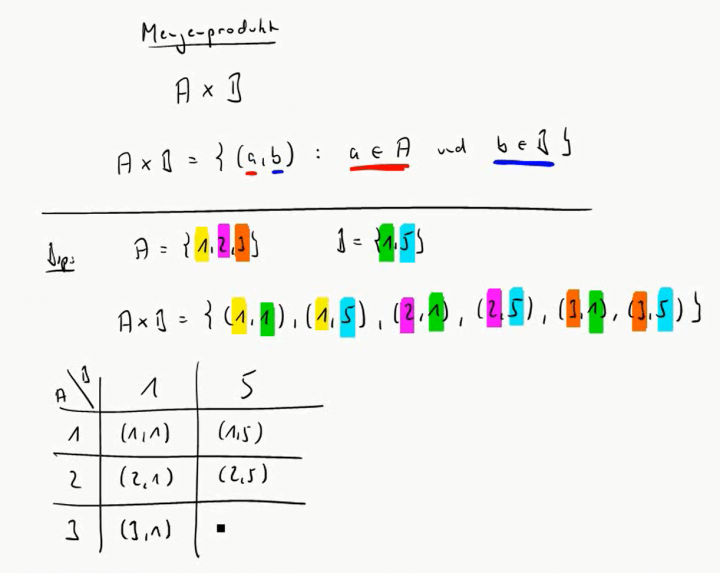 Mengenprodukt
A × B
A × B = { (a,b) : a ∈ A und b ∈ B }
Bsp: A = {1,2,3} B = {1,5}
A × B = { (1,1), (1,5), (2,1), (2,5), (3,1), (3,5) }
A \ B 1 5
1 (1,1) (1,5)
2 (2,1) (2,5)
3 (3,1)